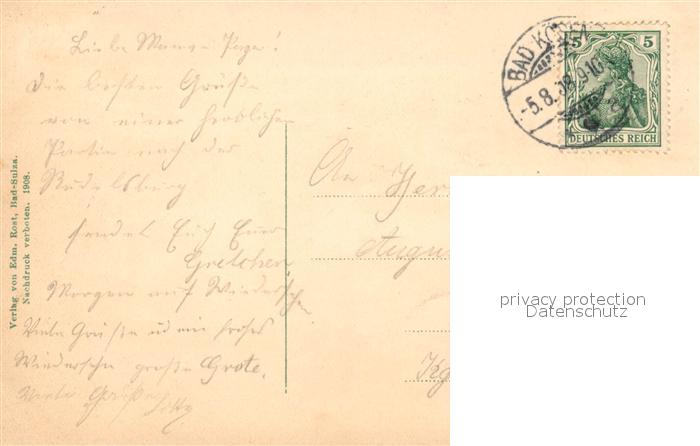 Liebe Mama u Papa!
Die besten Grüße
von einer herrlichen
Partie nach der
Rudelsburg
sendet Euch Eure
Gretchen
Morgen auf Wiedersehn
Viele Grüße und ein frohes
Wiedersehn Grete.
Viele Grüße
Verlag von Edm. Rost, Bad-Sulza.
Nachdruck verboten. 1908.
BAD KÖ
-5.8.08.9-10
5 5
DEUTSCHES REICH
An Herr
Augu
privacy protection
Datenschutz